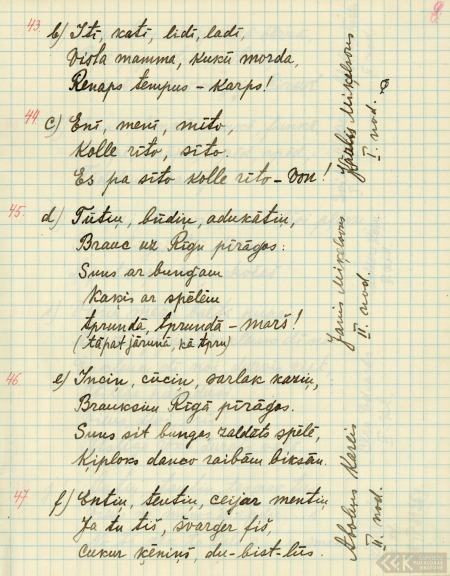 43. b) Iti, kati, lidi, ladi,
Vista mamma, kukū morda,
Renaps tempus – karps!
44. c) Eni, meni, mīto,
Kolle rīto, sīto.
Es pa sīto kolle rīto – von!
Kārlis Miķelsons
I. nod.
45. d) Tūtiņ, būdiņ, adukātiņ,
Brauc uz Rīgu pīrāgos:
Suns ar bungām
Kaķis ar spēlēm
tprundā, tprundā – marš!
(tāpat jārunā, kā tpru)
Jānis Miķelsons
II. nod.
46 e) Inciņ, cūciņ, sarlak kaziņ,
Brauksim Rīgā pīrāgos.
Suns sit bungas, zaldāts spēlē,
Ķiploks danco raibām biksām.
47 f) Entiņ, tentiņ, ceijar mentiņ
Ja tu tiš, švarger fiš
Cukur ķēniņš, du-bist-lūs.
Kārlis
II. nod.